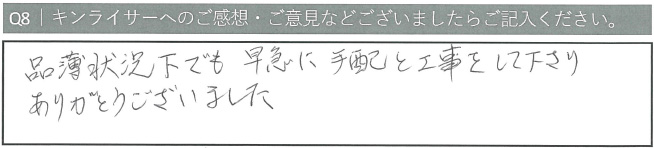 Q8｜キンライサーへのご感想・ご意見などございましたらご記入ください。
品薄状況下でも早急に手配と工事をして下さり
ありがとうございました